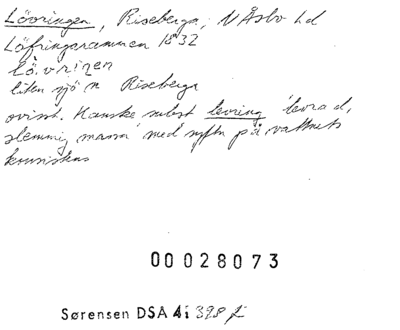 Lövringen, Riseberga, N Åsbo hd
Löfringarammen 1832
lö.vriŋen
liten sjö n Riseberga
ovisst. Kanske subst levring 'levrad,
slemmig massa' med syftn på vattnets
konsistens
00028073
Sørensen DSA 4: 398 f